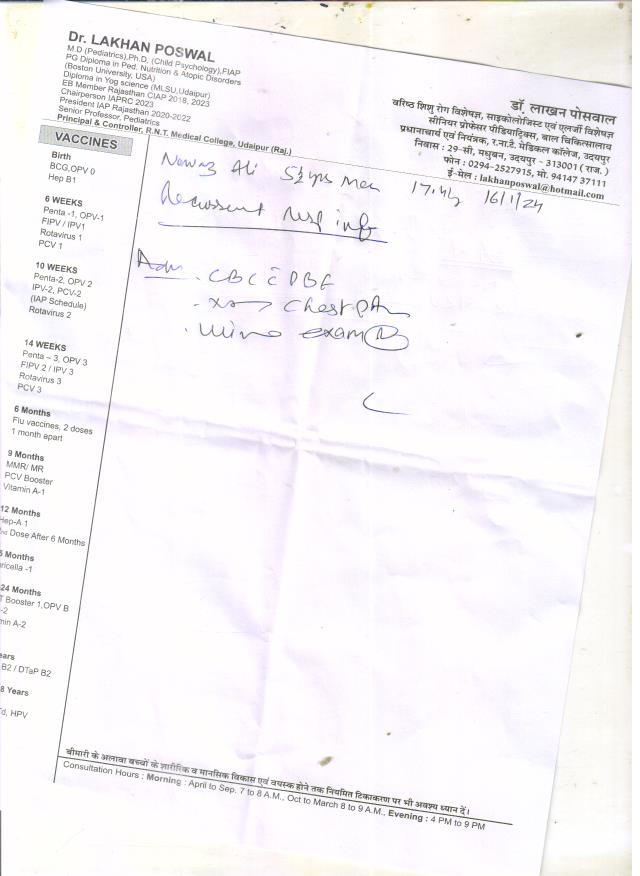 Dr. LAKHAN POSWAL
M.D (Pediatrics),Ph.D, (Child Psychology),FIAP
PG Diploma in Ped. Nutrition & Atopic Disorders
(Boston University, USA)
Diploma in Yog science (MLSU,Udaipur)
EB Member Rajasthan CIAP 2018, 2023
Chairperson IAPRC 2023
President IAP Rajasthan 2020-2022
Senior Professor, Pediatrics
Principal & Controller, R.N.T. Medical College, Udaipur (Raj.)
डॉ. लाखन पोसवाल
वरिष्ठ शिशु रोग विशेषज्ञ, साइकोलोजिस्ट एवं एलर्जी विशेषज्ञ
सीनियर प्रोफेसर पीडियाट्रिक्स, बाल चिकित्सालय
प्रधानाचार्य एवं नियंत्रक, र.ना.टै. मेडिकल कॉलेज, उदयपुर
निवास : 29-सी, मधुबन, उदयपुर - 313001 ( राज. )
फोन : 0294-2527915, मो. 94147 37111
ई-मेल : lakhanposwal@hotmail.com
VACCINES
Birth
BCG,OPV 0
Hep B1
6 WEEKS
Penta -1, OPV-1
FIPV / IPV1
Rotavirus 1
PCV 1
10 WEEKS
Penta-2, OPV 2
IPV-2, PCV-2
(IAP Schedule)
Rotavirus 2
14 WEEKS
Penta – 3, OPV 3
FIPV 2 / IPV 3
Rotavirus 3
PCV 3
6 Months
Flu vaccines, 2 doses
1 month apart
9 Months
MMR/ MR
PCV Booster
Vitamin A-1
12 Months
Hep-A 1
2nd Dose After 6 Months
5 Months
ricella -1
24 Months
T Booster 1,OPV B
-2
min A-2
ears
B2 / DTaP B2
8 Years
Td, HPV
Ali 5½ yrs 16/1/24
Recurrent resp inf
Adv. CBC c̄ PBF
Chest PA
exam
बीमारी के अलावा बच्चों के शारीरिक व मानसिक विकास एवं वयस्क होने तक नियमित टिकाकरण पर भी अवश्य ध्यान दें।
Consultation Hours : Morning : April to Sep. 7 to 8 A.M., Oct to March 8 to 9 A.M., Evening : 4 PM to 9 PM